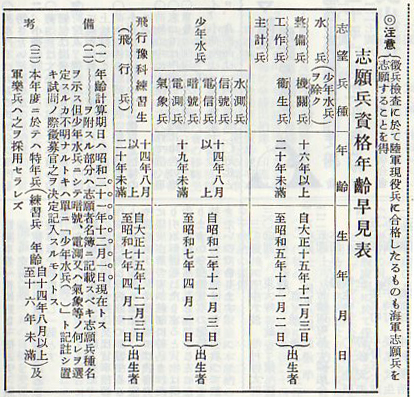 ◎注意
徴兵檢査に於て陸軍現役兵に合格したるものも海軍志願兵を
志願することを得
志願兵資格年齡早見表
志望兵種 年齡 生年月日
水兵(少年水兵ヲ除ク)
整備兵 機關兵
工作兵 衛生兵
主計兵
十六年以上
二十年未滿
自大正十五年十二月三日
至昭和五年十二月二日
出生者
少年水兵
水測兵
信號兵
電信兵
暗號兵
電測兵
氣象兵
十四年八月以上
十九年未滿
自昭和二年十二月三日
至昭和七年四月一日
出生者
飛行豫科練習生
(飛行兵)
十四年八月以上
二十年未滿
自大正十五年十二月三日
至昭和七年四月一日
出生者
備考
(一)年齡計算期日ハ昭和二十一年十二月一日現在トス
(二)ヲ附スル部分ハ志願者名簿ニ記載スベキ志願兵種名
ヲ示ス但少年水兵ニシテ暗號、電測又ハ氣象等ノ何レヲ選
定スルカ不明ナルトキハ單ニ「少年水兵( )」ト記註シ置
キ試問ノ際徴募官之ヲ決定記入スルモノトス
(三)本年度ニ於テハ特年兵(練習兵 年齡自十四年八月以上至十六年未滿)及
軍樂兵ハ之ヲ採用セラレズ